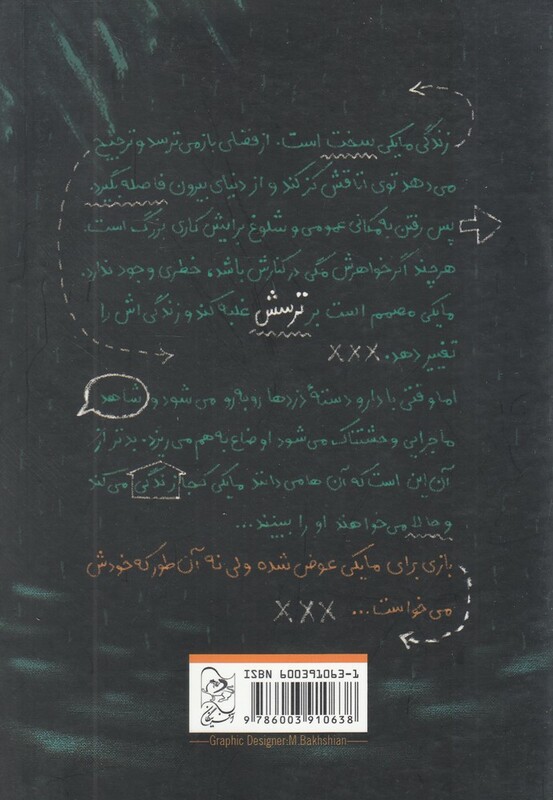 زندگی مایکی سخت است. از فضای باز می‌ترسد و ترجیح
می‌دهد توی اتاقش کز کند و از دنیای بیرون فاصله بگیرد.
پس رفتن به مکانی عمومی و شلوغ برایش کاری بزرگ است.
هرچند اگر خواهرش مگی در کنارش باشد، خطری وجود ندارد.
مایکی مصمم است بر ترسش غلبه کند و زندگی‌اش را
تغییر دهد. XXX
اما وقتی با دار و دستهٔ دزدها روبه‌رو می‌شود و شاهد
ماجرایی وحشتناک می‌شود اوضاع به هم می‌ریزد. بدتر از
آن این است که آن‌ها می‌دانند مایکی کجا زندگی می‌کند
و حالا می‌خواهند او را ببینند...
بازی برای مایکی عوض شده ولی نه آن طور که خودش
می‌خواست... XXX
ISBN 600391063-1
9 786003 910638
Graphic Designer:M.Bakhshian